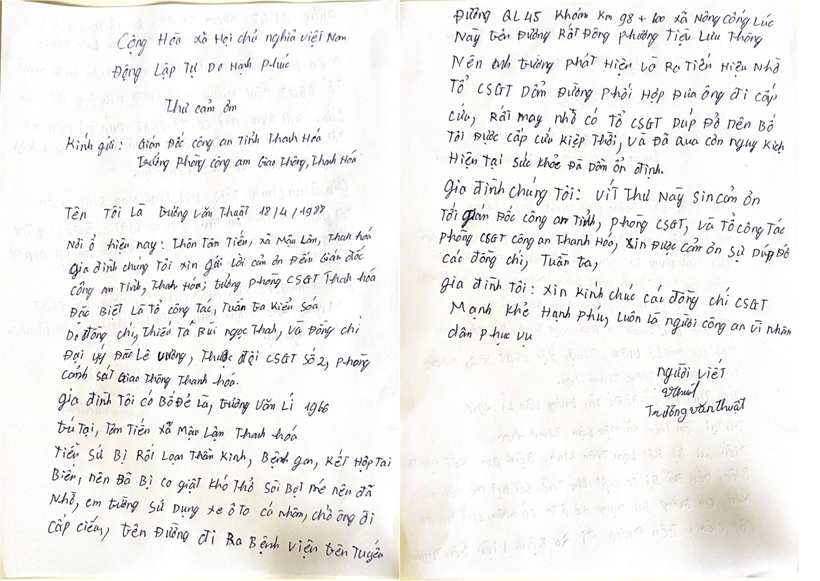 Cộng Hõa xã Hội chủ nghĩa việt Nam
Động Lập Tự Do Hạnh Phúc
Thư cảm ơn
Kính gửi: Giám Đốc công an Tỉnh Thanh Hóa
Trưởng Phòng cộng am Giao Thông, Thanh Hóa
Tên Tôi Là Trương Văn Thuật 18/4/1988
Nơi ở hiện nay: Thôn Tân Tiến, xã Mậu Lâm, Thanh hóa
gia đình chúng Tôi xin gửi Lời cảm ơn Đến Giản đốc
công an Tỉnh, Thanh Hóa; trưởng phòng CSGT Thanh hóa
Đặc Biệt Là Tổ công Tác, Tuần tra Kiểm Sóa
Do đồng chí, Thiếu Tá Bùi ngọc Thanh, và Đồng chí
Đại úy Đào Lê vương, Thuộc đội CSGT Số 2, phòng
cảnh sát Giao Thông Thanh hóa.
gia đình Tôi có Bố Đẻ Là, trương Văn Lí 1966
trú Tại, Tân Tiến xã Mậu Lận Thanh hóa
Tiền Sử Bị Rối Loạn Thần Kinh, Bệnh gan, Kết Hợp Tai
Biến, nên Đã Bị co giật Khó Thở Sôi Bọt mé nên đã
Nhờ, em trường Sử Dụng xe ô to cá nhân, chở ông đi
Cấp ciếu, trên Đường đi Ra Bệnh Viện trên Tuyến
Đường QL45 Khoảm Km 98 + 600 xã Nông Công Lúc
Này trên Đường Rất Đông phương Tiện Lưu Thông
Nên anh trường phát Hiện Và Ra Tiến Hiệu Nhờ
Tổ CSGT Dẫm Đường Phối Hợp Đưa ông đi cấp
cứu, Rất may nhờ có Tổ CSGT Dúp Đỡ nên Bố
Tôi Được cấp cứu Kiệp Thời, Và Đã Qua cơn nguy Kịch
Hiện tại Sức Khỏe Đã Dầm ổn định.
gia Đình chúng Tôi: Viết Thư Này Sin cảm ơn
Tới Giám Đốc công an Tỉnh, phòng CSGT, Và Tổ công Tác
phòng CSGT công an Thanh Hóa, Xin Được cảm ơn Sự Dúp Đỡ
các đồng chí, Tuần ta,
gia đình Tôi: Xin Kính chúc các đồng chí CSGT
Mạnh Khẻ Hạnh Phíu, Luôn là người công an Vì nhân
dân Phuc vụ
người viết
Thuật
Trương văn Thuật